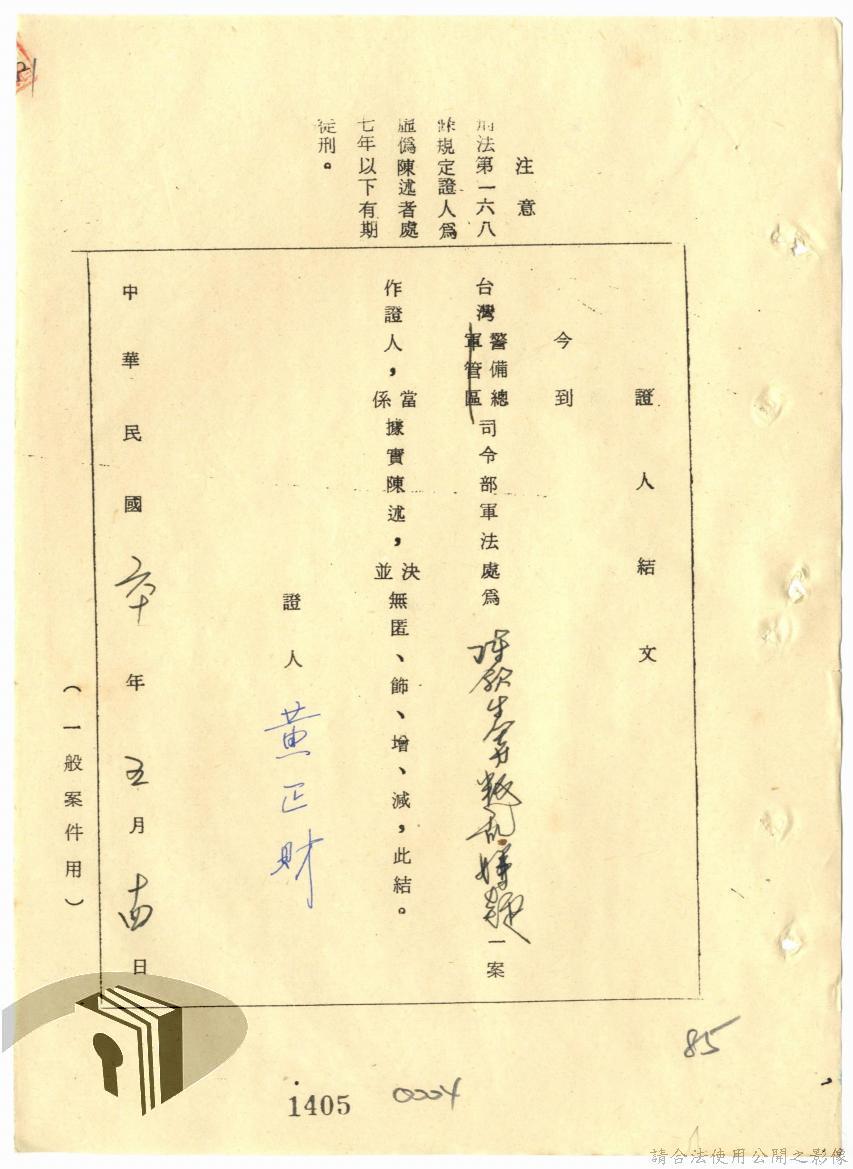 注意
刑法第一六八
條規定證人爲
虛僞陳述者處
七年以下有期
徒刑。
證人結文
今到
台灣警備總軍管區司令部軍法處爲陳欽生等叛亂嫌疑一案
作證人,係當據實陳述,並決無匿、飾、增、減,此結。
證人 黃正財
中華民國 年五月 日
(一般案件用)
85
1405
0004
請合法使用公開之影像